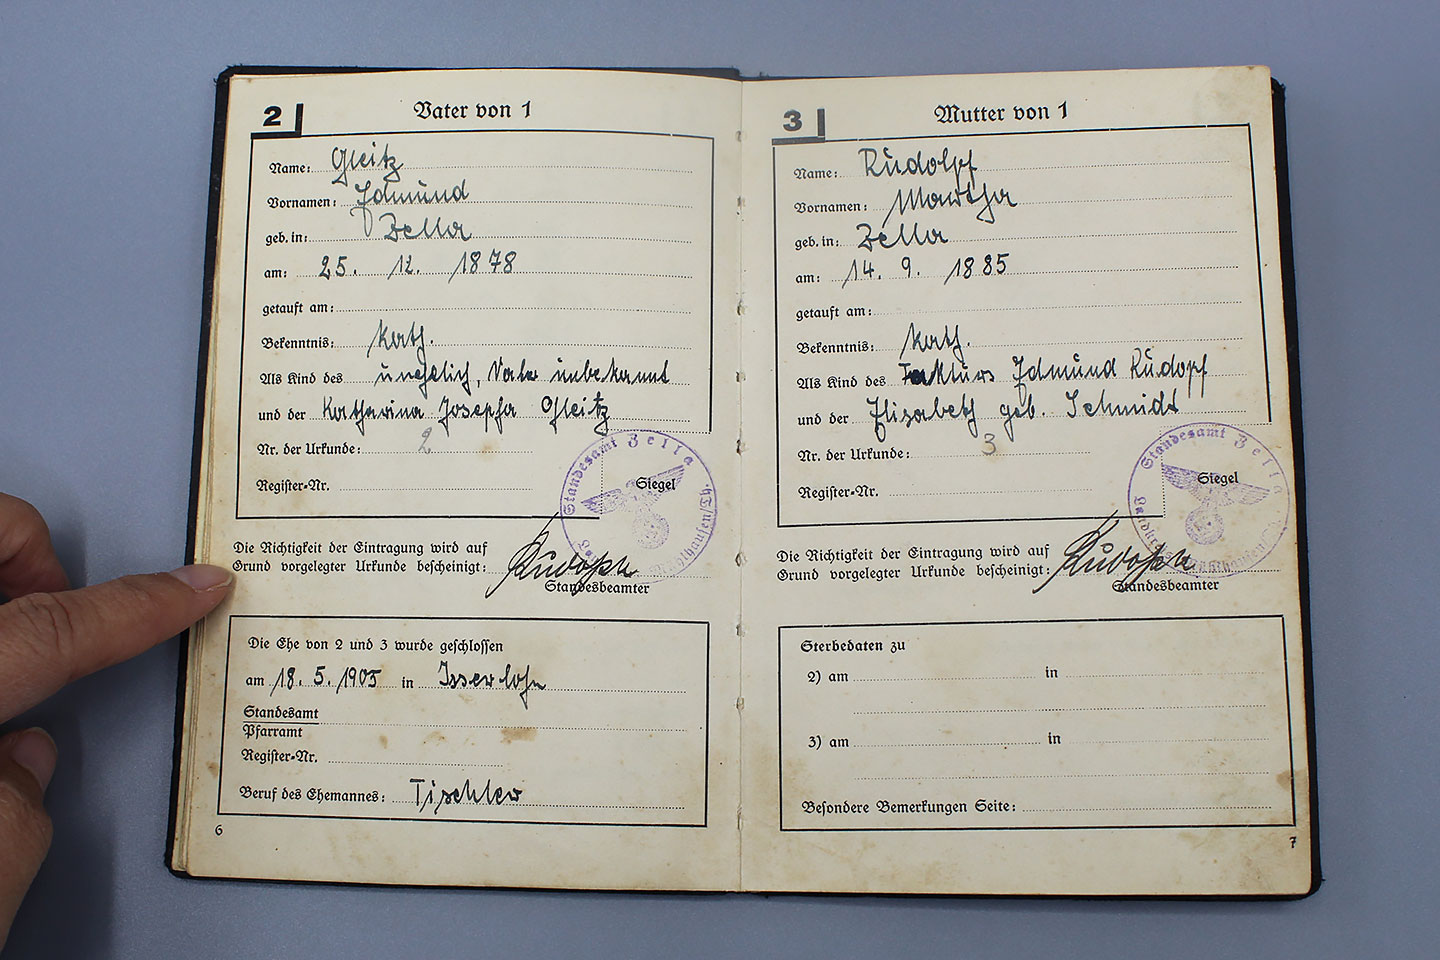 2 Vater von 1
Name: Gleitz
Vornamen: Edmund
geb. in: Zella
am: 25. 12. 1878
getauft am:
Bekenntnis: kath.
Als Kind des unehelich, Vater unbekannt
und der Katharina Josepha Gleitz
Nr. der Urkunde: 2
Register-Nr.
Standesamt Zella
Siegel
Die Richtigkeit der Eintragung wird auf
Grund vorgelegter Urkunde bescheinigt:
Standesbeamter
Die Ehe von 2 und 3 wurde geschlossen
am 18. 5. 1905 in Isserlohn
Standesamt
Pfarramt
Register-Nr.
Beruf des Ehemannes: Tischler
6
3 Mutter von 1
Name: Rudolpf
Vornamen: Martha
geb. in: Zella
am: 14. 9. 1885
getauft am:
Bekenntnis: kath.
Als Kind des Edmund Rudopf
und der Elisabeth geb. Schmidt
Nr. der Urkunde: 3
Register-Nr.
Standesamt Zella
Siegel
Die Richtigkeit der Eintragung wird auf
Grund vorgelegter Urkunde bescheinigt:
Standesbeamter
Sterbedaten zu
2) am in
3) am in
Besondere Bemerkungen Seite:
7